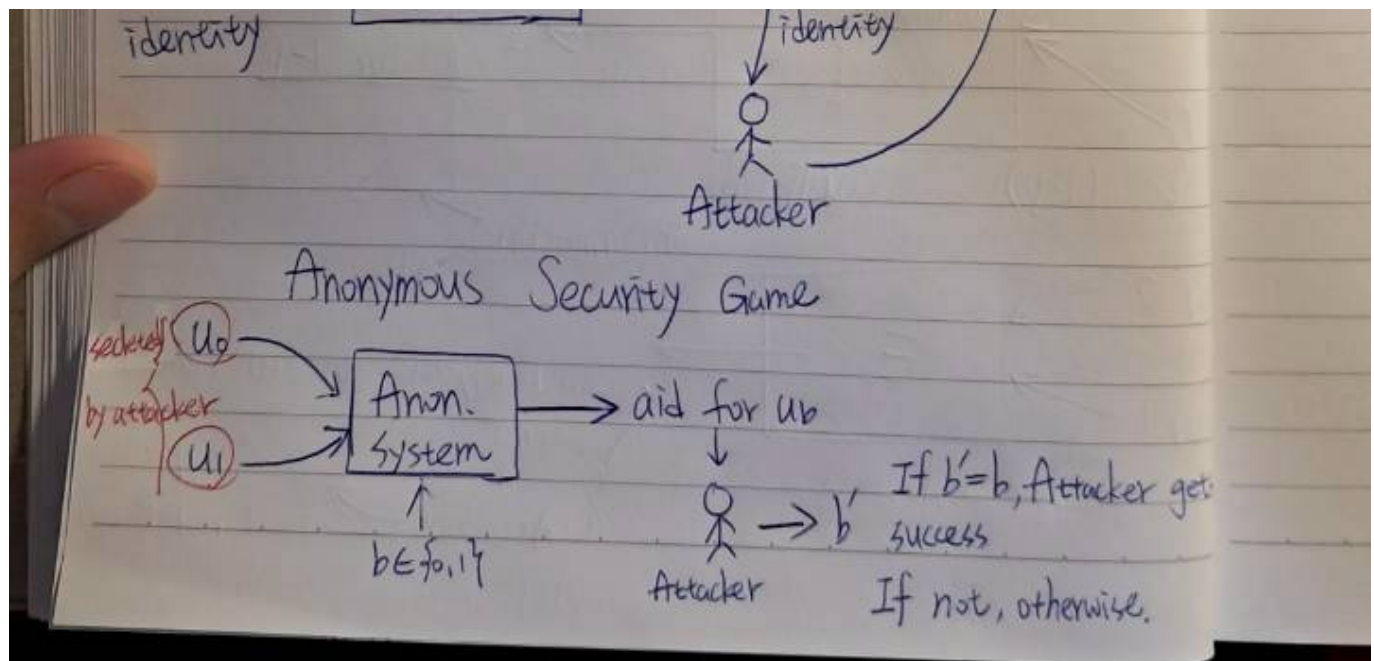 identity
identity
Attacker
Anonymous Security Game
U₀
by attacker
U₁
Anon.
system
b∈{0,1}
aid for ub
Attacker
b'
If b'=b, Attacker get
success
If not, otherwise.